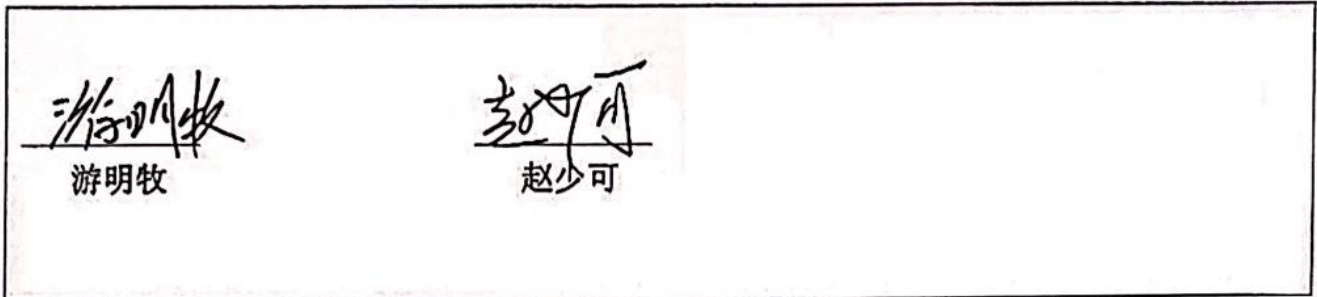 游明牧 赵少可
游明牧 赵少可